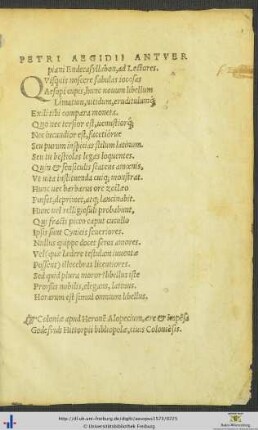 PETRI AEGIDII ANTVER
piani Endecasyllabon, ad Lectores.
QVisquis noscere fabulas iocosas
Aesopi cupis, hunc nouum libellum
Limatum, nitidum, eruditulumq́;
Exili tibi compara moneta.
Quo nec tersior est, uenustiorq́;
Nec iucundior est, facetiorue
Seu purum inspicias stilum latinum.
Seu tu bestiolas legas loquentes.
Quin & sensiculis scatent amœnis,
Vt uita instituenda cuiq; monstrat.
Hunc nec barbarus ore
Posset, deprimet, atq; lancinabit.
Hunc uel relligiosuli probabunt,
Qui fractis pico caput cucullo
Ipsis sunt Cynicis seueriores.
Nullus quippe docet feros amores.
Vel quæ ludere testulam iuuentæ
Possent, illecebras licentiores.
Sed quid plura moror? libellus iste
Prorsus nobilis, elegans, latinus.
Horarum est trium omnium libellus.
Coloniæ apud Heronē Alopecium, ære & impēsa
Godefridi Hittorpii bibliopolæ, ciuis Coloniēsis.
http://dl.ub.uni-freiburg.de/diglit/aesopus1523/0225
© Universitätsbibliothek Freiburg